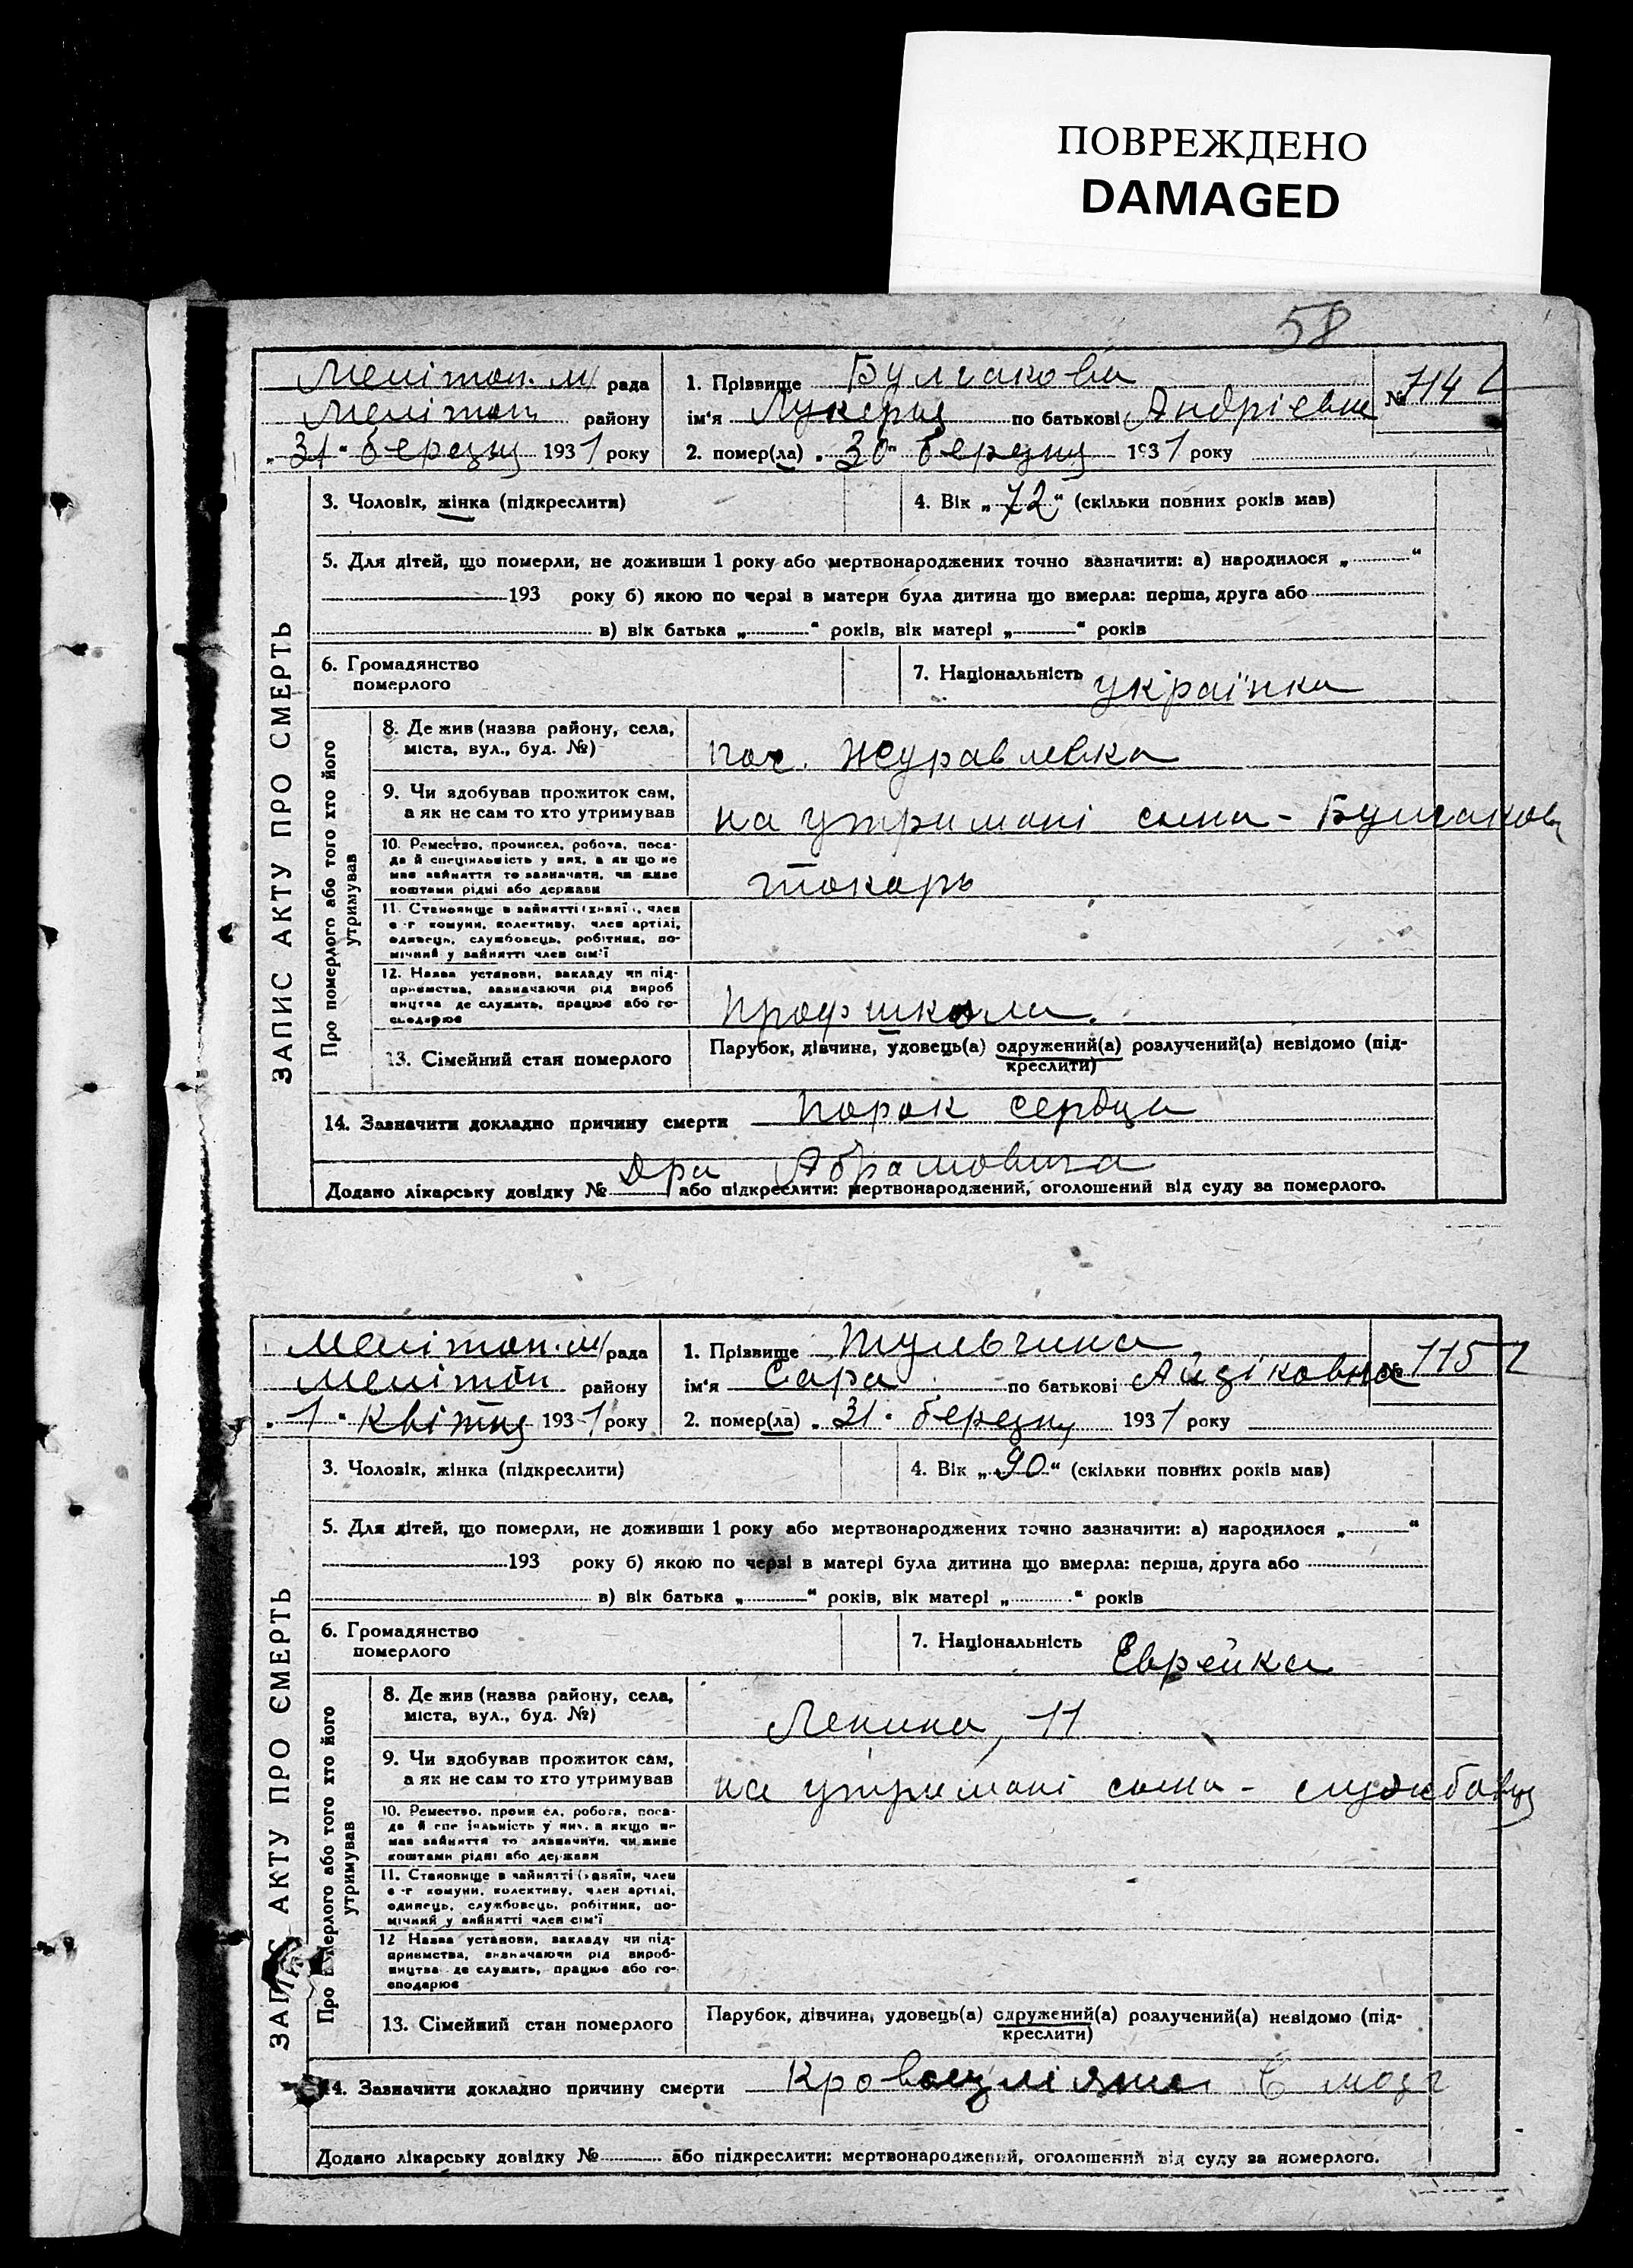 ПОВРЕЖДЕНО
DAMAGED
58
Мелітоп. м/ рада
1. Прізвище Булгакова
№ 114
Мелітоп. району
ім'я Лукерия по батькові Андрієвна
„31" березня 1931 року
2. помер(ла) „30" березня 1931 року
ЗАПИС АКТУ ПРО СМЕРТЬ
3. Чоловік, жінка (підкреслити)
4. Вік „72" (скільки повних років мав)
5. Для дітей, що померли, не доживши 1 року або мертвонароджених точно зазначити: а) народилося „ "
193 року б) якою по черзі в матери була дитина що вмерла: перша, друга або
в) вік батька „ " років, вік матері „ " років
6. Громадянство
померлого
7. Національність українка
Про померлого або того хто його
утримував
8. Де жив (назва району, села,
міста, вул., буд. №)
пос. Журавлевка
9. Чи здобував прожиток сам,
а як не сам то хто утримував
на утримані сина - Булгаков
10. Ремество, промисел, робота, поса-
да й спеціяльність у них, а як що не
мав зайняття то зазначити, чи живе
коштами рідні або держави
токарь
11. Становище в зайнятті (хазяїн, член
с-г комуни, колективу, член артілі,
одинець, службовець, робітник, по-
мічний у зайнятті член сім'ї
12. Назва установи, закладу чи під-
приємства, зазначаючи рід вироб
ництва де служить, працює або го-
сподарює
Профшкола.
13. Сімейний стан померлого
Парубок, дівчина, удовець(а) одружений(а) розлучений(а) невідомо (під-
креслити)
14. Зазначити докладно причину смерти Порок сердца
Дра Абрамовича
Додано лікарську довідку № або підкреслити: мертвонароджений, оголошений від суду за померлого.
Мелітоп. м/ рада
1. Прізвище Тульчина
№ 115
Мелітоп району
ім'я Сара по батькові Айзіковна
„1" Квітня 1931 року
2. помер(ла) „31" березня 1931 року
ЗАПИС АКТУ ПРО СМЕРТЬ
3. Чоловік, жінка (підкреслити)
4. Вік „90" (скільки повних років мав)
5. Для дітей, що померли, не доживши 1 року або мертвонароджених точно зазначити: а) народилося „ "
193 року б) якою по черзі в матері була дитина що вмерла: перша, друга або
в) вік батька „ " років, вік матері „ " років
6. Громадянство
померлого
7. Національність Еврейка
Про померлого або того хто його
утримував
8. Де жив (назва району, села,
міста, вул., буд. №)
Ленина, 11
9. Чи здобував прожиток сам,
а як не сам то хто утримував
на утримані сина - службовця
10. Ремество, промисел, робота, поса-
да й спеціяльність у них, а якщо не
мав зайняття то зазначити, чи живе
коштами рідні або держави
11. Становище в зайнятті (хазяїн, член
с-г комуни, колективу, член артілі,
одинець, службовець, робітник, по-
мічний у зайнятті член сім'ї
12 Назва установи, закладу чи під-
приємства, зазначаючи рід вироб-
ництва де служить, працює або го-
сподарює
13. Сімейний стан померлого
Парубок, дівчина, удовець(а) одружений(а) розлучений(а) невідомо (під-
креслити)
14. Зазначити докладно причину смерти в мозг
Додано лікарську довідку № або підкреслити: мертвонароджений, оголошений від суду за померлого.